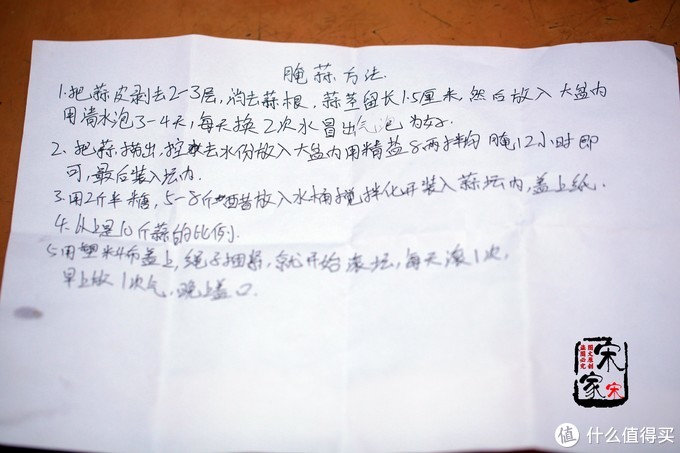 腌蒜方法
1.把蒜皮剥去2-3层,消去蒜根,蒜茎留长1.5厘米,然后放入大盆内
用清水泡3-4天,每天换2次水冒出气泡为好.
2、把蒜捞出,控去水份放入大盆内用精盐8两拌均腌12小时即
可,最后装入坛内.
3.用2斤半糖,5-8斤醋放入水桶搅拌化开装入蒜坛内,盖上纸.
4.以上是10斤蒜的比例.
5.用塑料布盖上,绳子捆紧,就开始滚坛,每天滚1次,
早上放1次气,晚上盖口.
图文原创
盗图必究
宋家
宋
值 什么值得买